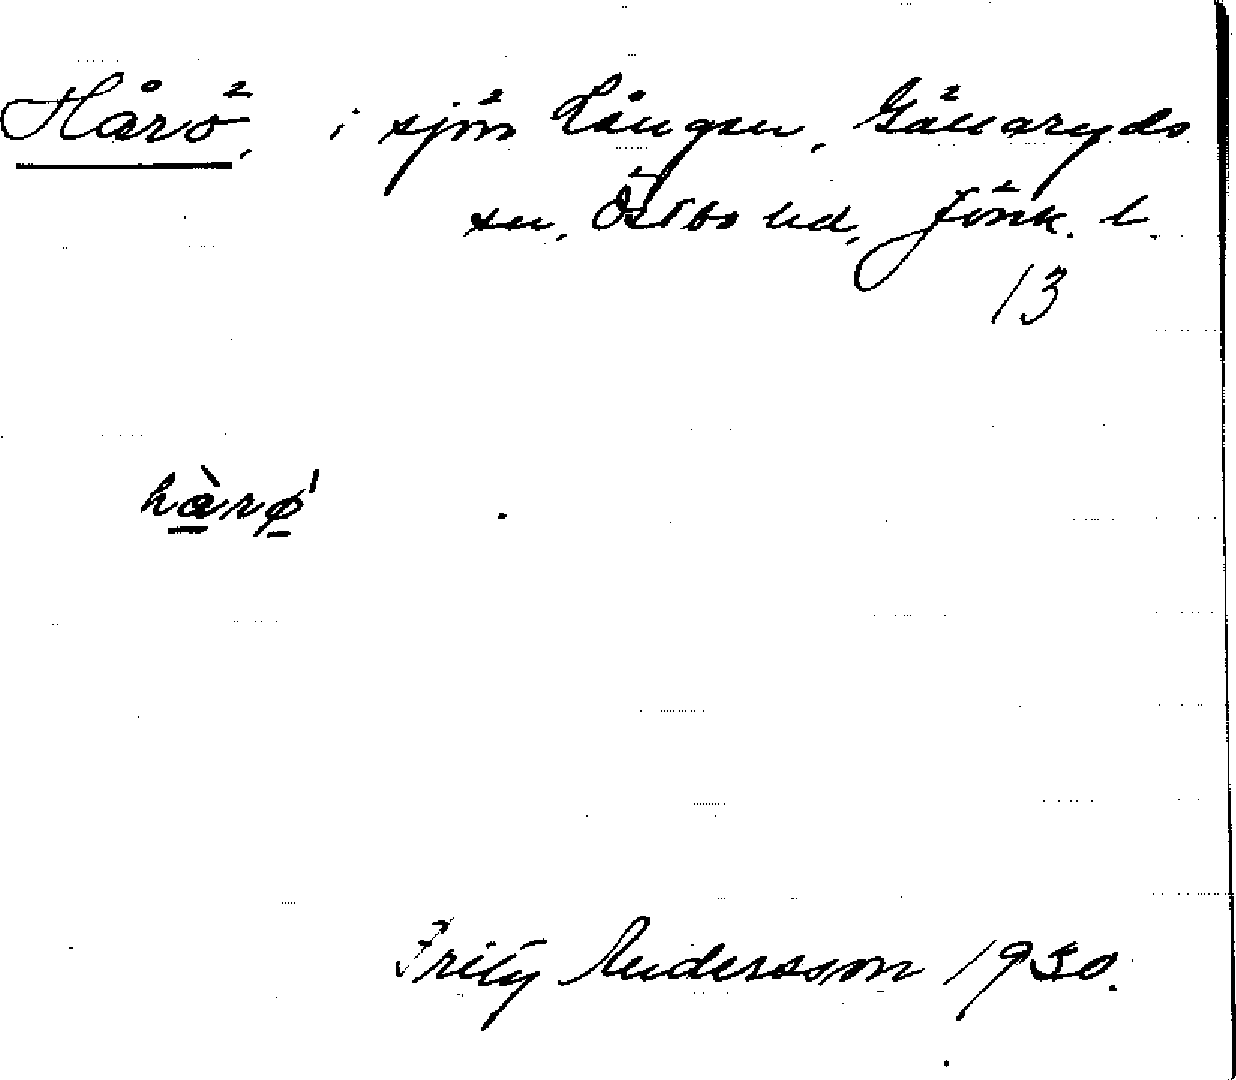 Hårö, i sjön Lången, Gällaryds
sn, Östbo hd, Jönk. l.
13
hàrø'
Fritz Andersson 1930.